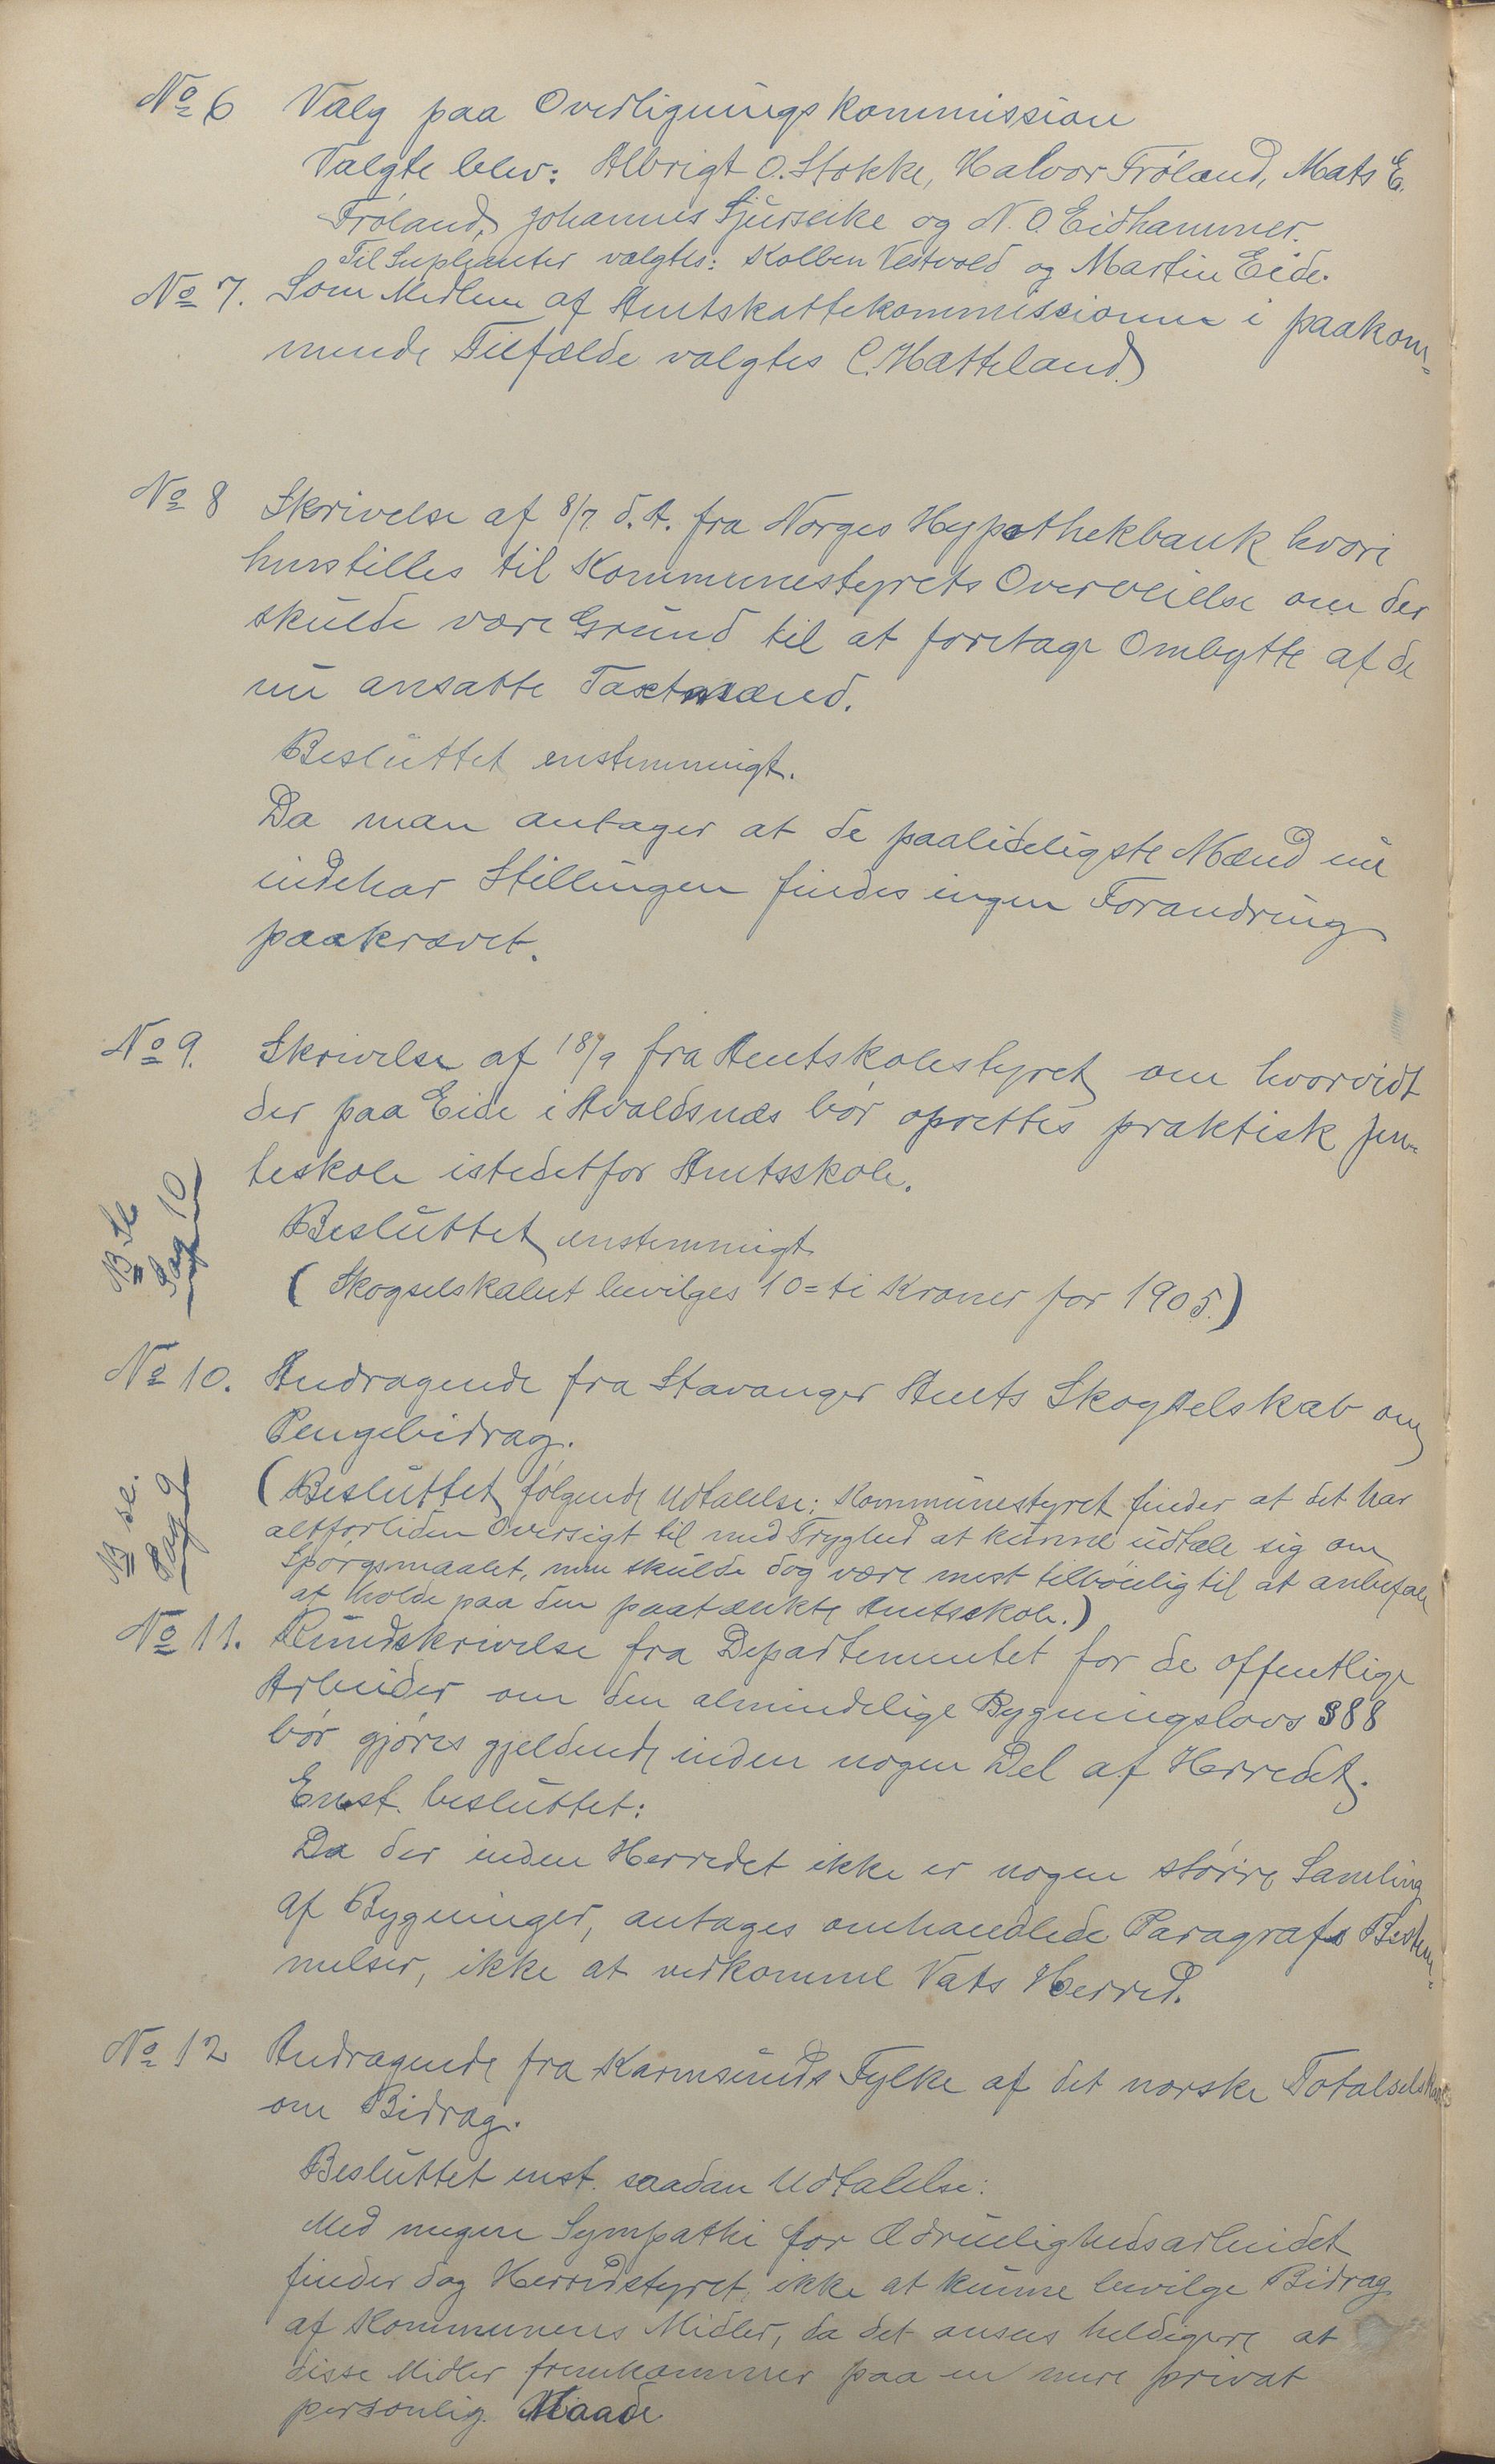 No 6 Valg paa Overligningskommission
Valgte blev: Albrigt O. Stokke, Halvor Frøland, Mats E.
Frøland, Johannes Sjurseike og N. O. Eidhammer.
Til Suplianter valgtes: Kolben Vestvold og Martin Eide.
No 7. Som Medlem af Amtskattekommissionen i paakom-
mende Tilfælde valgtes C. Hatteland.
No 8 Skrivelse af 8/7 d. A. fra Norges Hypothekbank hvori
henstilles til Kommunestyrets Overveielse om der
skulde være Grund til at foretage Ombytte af de
nu ansatte Taxtmænd.
Besluttet enstemmigt.
Da man antager at de paalideligste Mænd nu
indehar Stillingen findes ingen Forandring
paakrævet.
No 9. Skrivelse af 18/9 fra Amtskolestyret om hvorvidt
der paa Eide i Avaldsnæs bør oprettes praktisk Jen-
teskole istedetfor Amtsskole.
Besluttet enstemmigt
(Skogselskabet bevilges 10 = ti Kroner for 1905.)
B. se
Sag 10
No 10. Andragende fra Stavanger Amts Skogselskab om
Pengebidrag.
(Besluttet følgende Udtalelse: Kommunestyret finder at det har
altforliden Oversigt til med Tryghed at kunne udtale sig om
Spørgsmaalet, men skulde dog være mest tilbøielig til at anbefale
at holde paa den paatænkte Amtsskole.)
B se.
Sag 9
No 11. Rundskrivelse fra Departementet for de offentlige
Arbeider om den almindelige Bygningslovs §88
bør gjøres gjeldende inden nogen Del af Herredet.
Enst. besluttet:
Da der inden Herredet ikke er nogen større Samling
af Bygninger, antages omhandlede Paragrafs Bestem-
melser, ikke at vedkomme Vats Herred.
No 12 Andragende fra Karmsunds Fylke af det norske Totalselskab
om Bidrag.
Besluttet enst. saadan Udtalelse:
Med megen Sympathi for Ædruelighedsarbeidet
finder dog Herredstyret ikke at kunne bevilge Bidrag
af Kommunens Midler, da det ansees heldigere at
disse Midler fremkommer paa en mere privat
personlig Maade